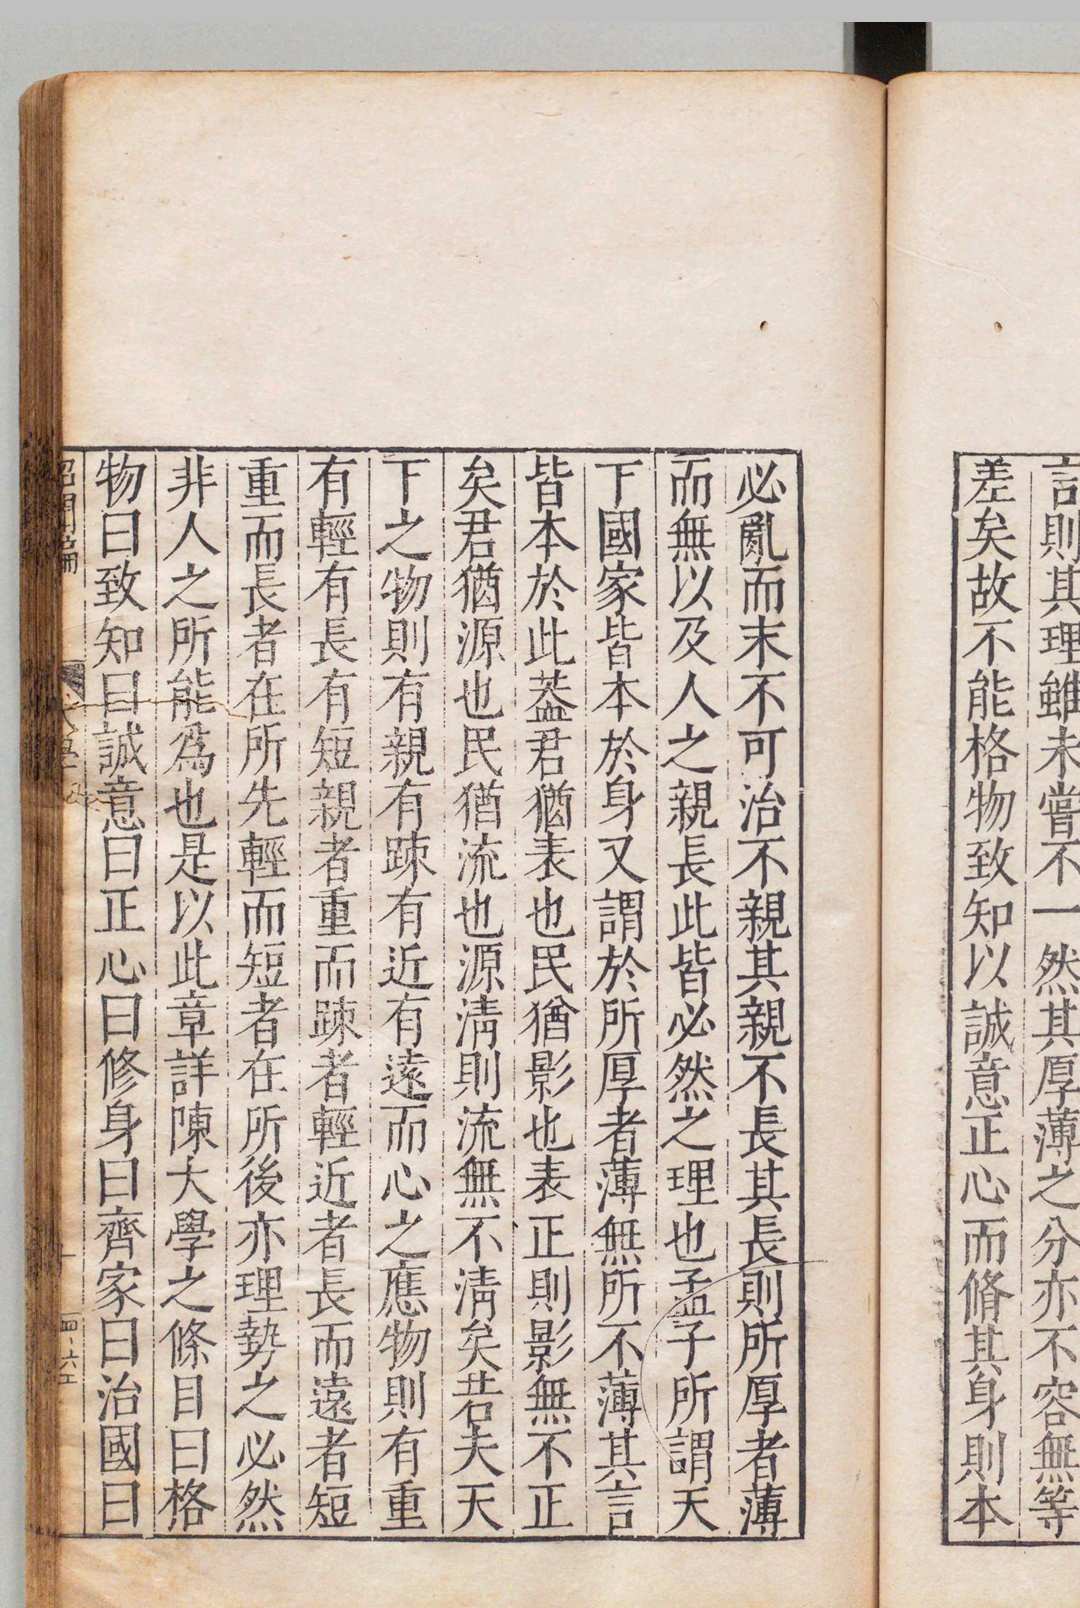 言則其理雖未嘗不一然其厚薄之分亦不容無等
差矣故不能格物致知以誠意正心而脩其身則本
必亂而末不可治不親其親不長其長則所厚者薄
而無以及人之親長此皆必然之理也孟子所謂天
下國家皆本於身又謂於所厚者薄無所不薄其言
皆本於此蓋君猶表也民猶影也表正則影無不正
矣君猶源也民猶流也源清則流無不清矣若夫天
下之物則有親有踈有近有遠而心之應物則有重
有輕有長有短親者重而踈者輕近者長而遠者短
重而長者在所先輕而短者在所後亦理勢之必然
非人之所能為也是以此章詳陳大學之條目曰格
物曰致知曰誠意曰正心曰修身曰齊家曰治國曰